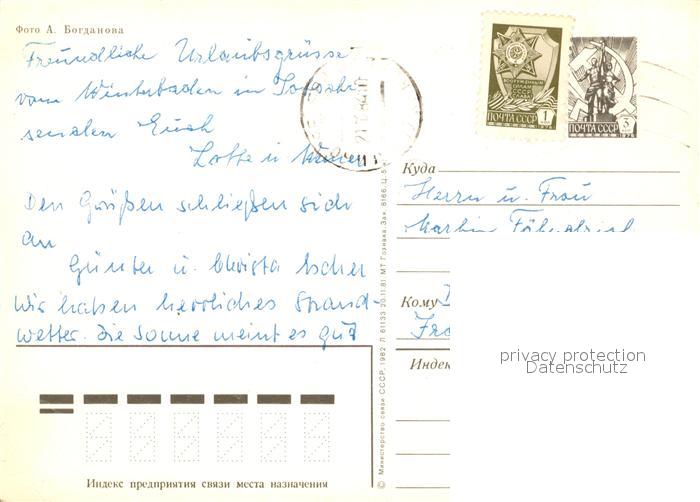 Фото А. Богданова
Freundliche Urlaubsgrüsse
vom Winterbaden in
senden Euch
Lotte u.
Den Grüßen schließen sich
an
Günter u. Christa
Wir haben herrliches Strand-
wetter. Die Sonne meint es gut
ВООРУЖЕННЫМ
СИЛАМ
СССР
СЛАВА
ПОЧТА СССР
1
ПОЧТА СССР
3
Куда
Herrn u. Frau
Martin
Кому
Индек
privacy protection
Datenschutz
© Министерство связи СССР. 1982 Л 61133 20.11.81. МТ Гознака. Зак. 8166. Ц. 5
Индекс предприятия связи места назначения